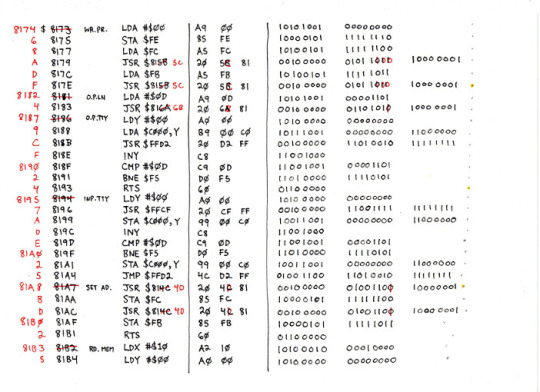 8174 $ 8173 WR.PR. LDA #$ØØ A9 ØØ 10101001 00000000
6 8175 STA $FE 85 FE 10000101 11111110
8 8177 LDA $FC A5 FC 10100101 11111100
A 8179 JSR $815B 5C 2Ø 5C 81 00100000 01011100 10000001
D 817C LDA $FB A5 FB 10100101 11111011
F 817E JSR $815B 5C 2Ø 5C 81 00100000 01011100 10000001
8182 8181 O.P.LN LDA #$ØD A9 ØD 10101001 00001101
4 8183 JSR $816A 6B 2Ø 6B 81 00100000 01101011 10000001
8187 8186 O.P.TTY LDY #$ØØ AØ ØØ 10100000 00000000
9 8188 LDA $CØØØ,Y B9 ØØ CØ 10111001 00000000 11000000
C 818B JSR $FFD2 2Ø D2 FF 00100000 11010010 11111111
F 818E INY C8 11001000
819Ø 818F CMP #$ØD C9 ØD 11001001 00001101
2 8191 BNE $F5 DØ F5 11010000 11110101
4 8193 RTS 6Ø 01100000
8195 8194 INP.TTY LDY #$ØØ AØ ØØ 10100000 00000000
7 8196 JSR $FFCF 2Ø CF FF 00100000 11001111 11111111
A 8199 STA $CØØØ,Y 99 ØØ CØ 10011001 00000000 11000000
D 819C INY C8 11001000
E 819D CMP #$ØD C9 ØD 11001001 00001101
81AØ 819F BNE $F5 DØ F5 11010000 11110101
2 81A1 STA $CØØØ,Y 99 ØØ CØ 10011001 00000000 11000000
5 81A4 JMP $FFD2 4C D2 FF 01001100 11010010 11111111
81A8 81A7 SET AD. JSR $814C 4D 2Ø 4D 81 00100000 01001101 10000001
B 81AA STA $FC 85 FC 10000101 11111100
D 81AC JSR $814C 4D 2Ø 4D 81 00100000 01001101 10000001
81BØ 81AF STA $FB 85 FB 10000101 11111011
2 81B1 RTS 6Ø 01100000
81B3 81B2 RD. MEM LDX #$1Ø A2 1Ø 10100010 00010000
5 81B4 LDY #$ØØ AØ ØØ 10100000 00000000